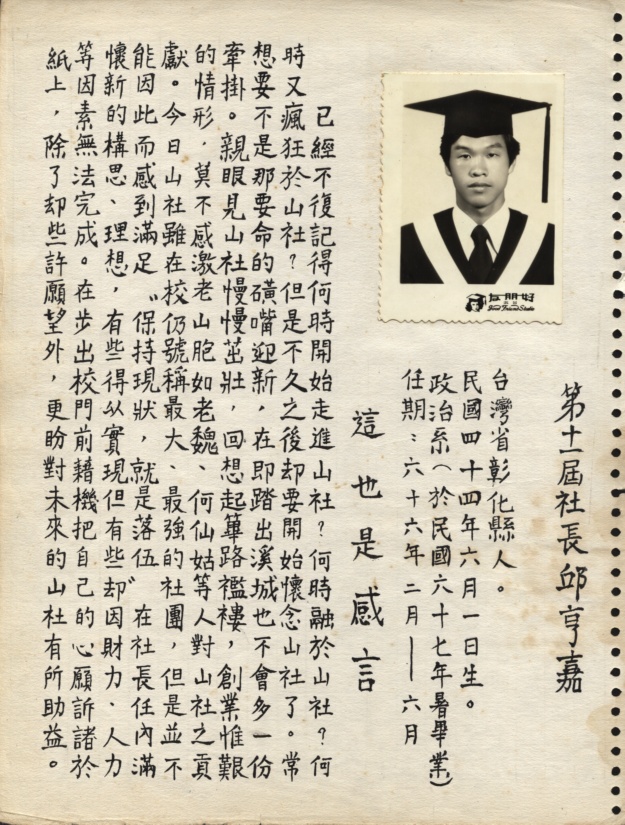 第十一屆社長邱亨嘉
台灣省彰化縣人。
民國四十四年六月一日生。
政治系（於民國六十七年暑畢業）
任期：六十六年二月－六月
這也是感言
已經不復記得何時開始走進山社？何時融於山社？何
時又瘋狂於山社？但是不久之後却要開始懷念山社了。常
想要不是那要命的磺嘴迎新，在即踏出溪城也不會多一份
牽掛。親眼見山社慢慢茁壯，回想起篳路襤褸，創業惟艱
的情形，莫不感激老山胞如老魏、何仙姑等人對山社之貢
獻。今日山社雖在校仍號稱最大、最強的社團，但是並不
能因此而感到滿足〝保持現狀，就是落伍〞在社長任內滿
懷新的構思、理想，有些得以實現但有些却因財力、人力
等因素無法完成。在步出校門前藉機把自己的心願訴諸於
紙上，除了却些許願望外，更盼對未來的山社有所助益。